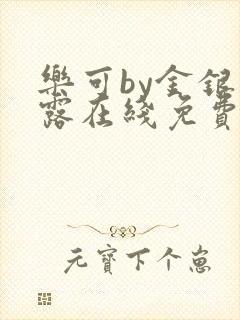 樂可by金銀
露在綫免費
元寶下个崽